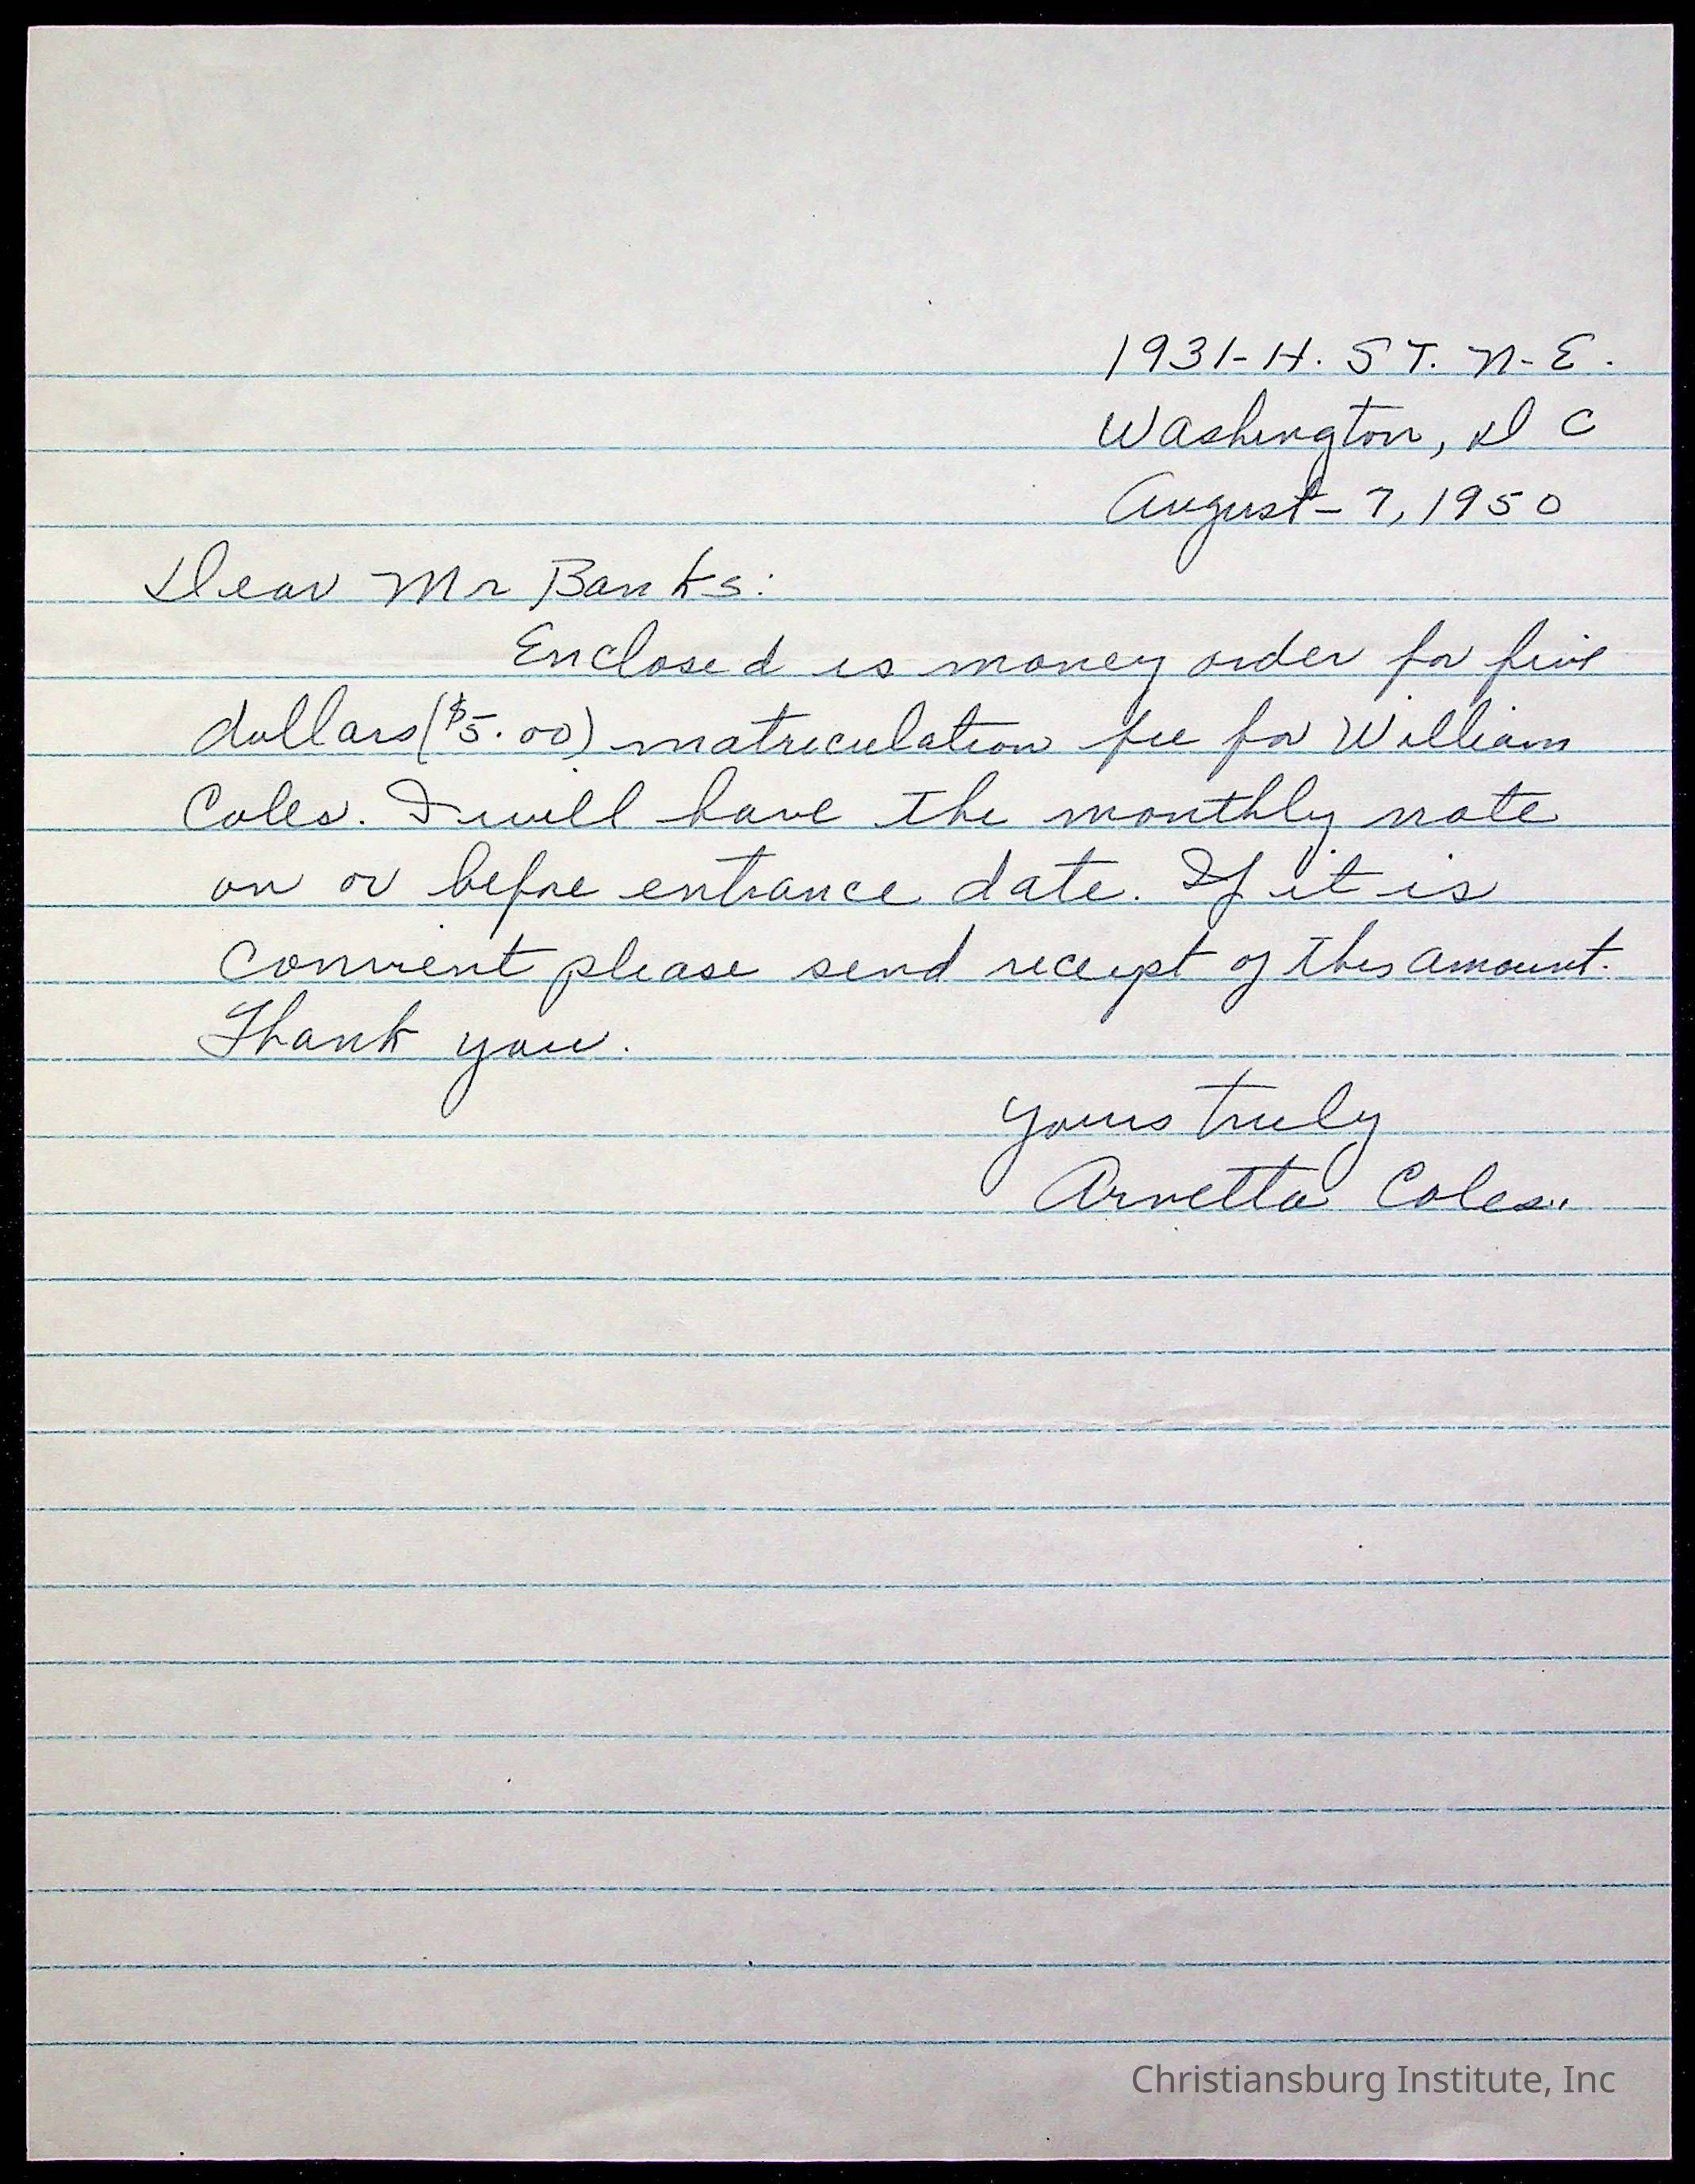 1931-H. ST. N-E.
Washington, D C
August-7, 1950
Dear Mr Banks:
Enclosed is money order for five
dollars ($5.00) matriculation fee for William
Coles. I will have the monthly note
on or before entrance date. If it is
convient please send receipt of this amount.
Thank you.
Yours truly
Arvetta Coles..
Christiansburg Institute, Inc